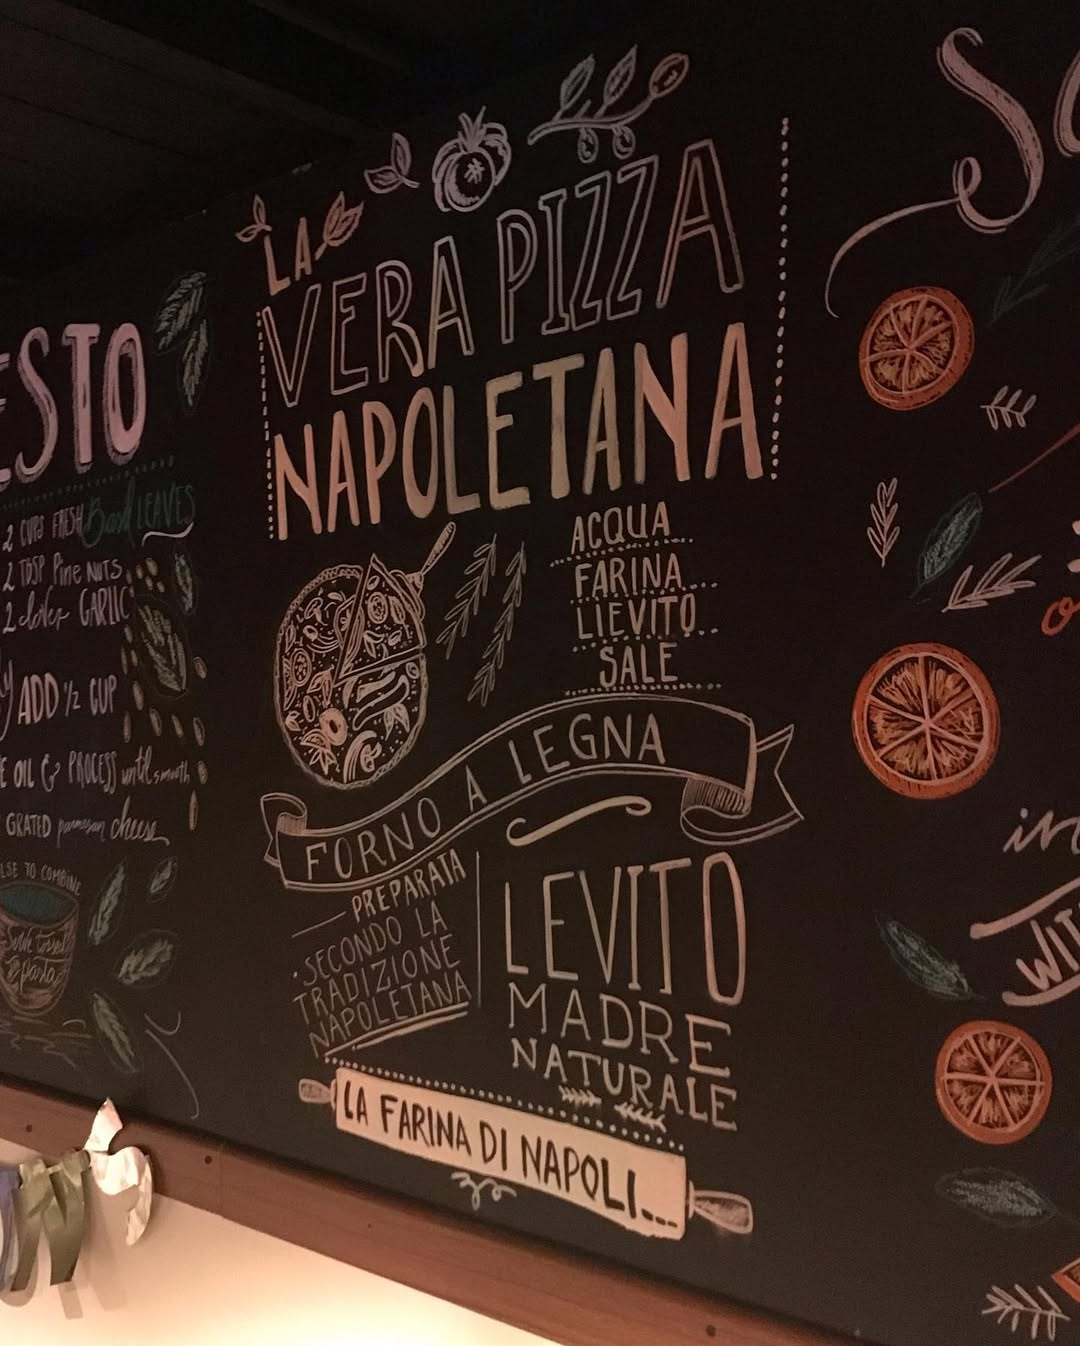 ESTO
2 CUPS FRESH Basil LEAVES
2 TBSP Pine NUTS
2 cloves GARLIC
ADD 1/2 CUP
E OIL & PROCESS until smooth
GRATED parmesan cheese
LSE TO COMBINE
Serve tossed
pasta
LA
VERA PIZZA
NAPOLETANA
ACQUA
FARINA
LIEVITO
SALE
FORNO A LEGNA
PREPARATA
SECONDO LA
TRADIZIONE
NAPOLETANA
LEVITO
MADRE
NATURALE
LA FARINA DI NAPOLI...